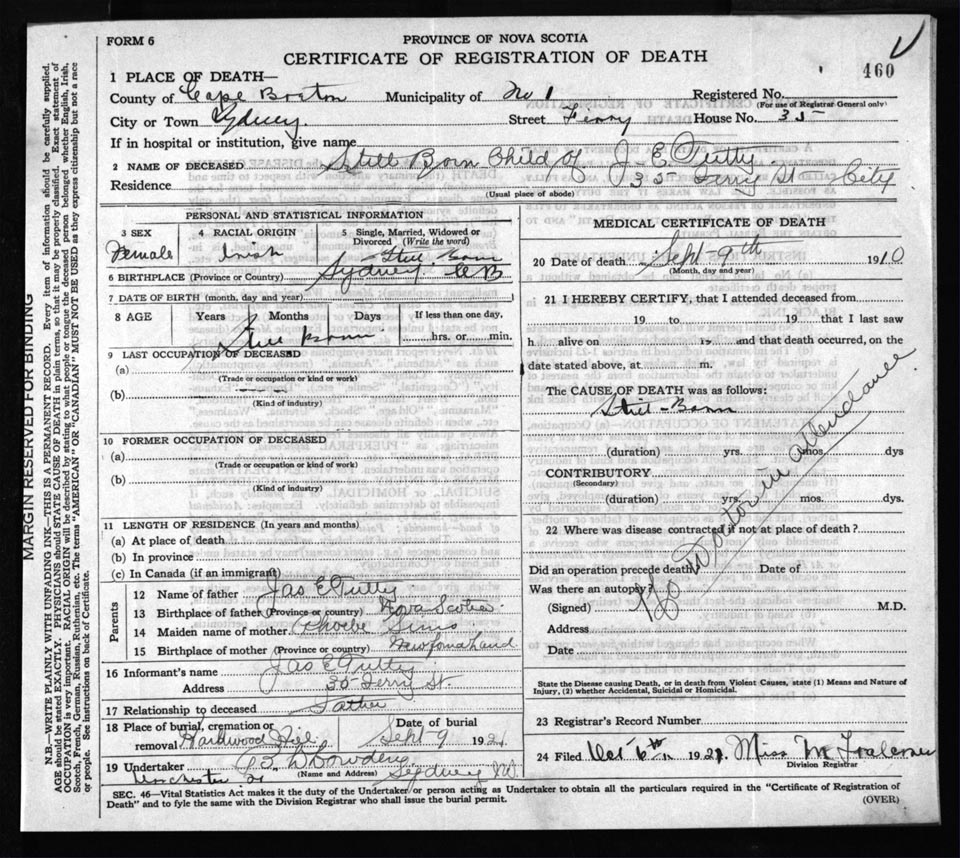 FORM 6
PROVINCE OF NOVA SCOTIA
CERTIFICATE OF REGISTRATION OF DEATH
460
1 PLACE OF DEATH—
County of Cape Breton Municipality of No 1 Registered No.
(For use of Registrar General only)
City or Town Sydney Street Ferry House No. 35
If in hospital or institution, give name
2 NAME OF DECEASED Still Born Child of J. E. Tutty
Residence 35 Ferry St City
(Usual place of abode)
PERSONAL AND STATISTICAL INFORMATION
3 SEX
Female
4 RACIAL ORIGIN
Irish
5 Single, Married, Widowed or Divorced (Write the word)
Still Born
6 BIRTHPLACE (Province or Country) Sydney CB
7 DATE OF BIRTH (month, day and year)
8 AGE Years Months Days If less than one day,
Still Born hrs. or min.
9 LAST OCCUPATION OF DECEASED
(a)
(Trade or occupation or kind or work)
(b)
(Kind of industry)
10 FORMER OCCUPATION OF DECEASED
(a)
(Trade or occupation or kind of work)
(b)
(Kind of industry)
11 LENGTH OF RESIDENCE (In years and months)
(a) At place of death
(b) In province
(c) In Canada (if an immigrant)
Parents
12 Name of father Jas E Tutty
13 Birthplace of father (Province or country) Nova Scotia
14 Maiden name of mother Phoebe Sims
15 Birthplace of mother (Province or country) Newfoundland
16 Informant's name Jas E Tutty
Address 35 Ferry St.
17 Relationship to deceased Father
18 Place of burial, cremation or removal Hardwood Hill Date of burial Sept 9 192
19 Undertaker
(Name and Address) Sydney
MEDICAL CERTIFICATE OF DEATH
20 Date of death Sept 9th 19
(Month, day and year)
21 I HEREBY CERTIFY, that I attended deceased from
19 to 19 that I last saw
h alive on 19 and that death occurred, on the
date stated above, at m.
The CAUSE OF DEATH was as follows:
Still-Born
(duration) yrs. mos. dys
CONTRIBUTORY
(Secondary)
(duration) yrs. mos. dys.
22 Where was disease contracted if not at place of death?
Did an operation precede death Date of
Was there an autopsy?
(Signed) M.D.
Address
Date
No Doctor in attendance
State the Disease causing Death, or in death from Violent Causes, state (1) Means and Nature of
Injury, (2) whether Accidental, Suicidal or Homicidal.
23 Registrar's Record Number
24 Filed Oct 6th 192 Miss M
Division Registrar
SEC. 46—Vital Statistics Act makes it the duty of the Undertaker or person acting as Undertaker to obtain all the particulars required in the "Certificate of Registration of
Death" and to fyle the same with the Division Registrar who shall issue the burial permit.
(OVER)
MARGIN RESERVED FOR BINDING
N.B.—WRITE PLAINLY WITH UNFADING INK—THIS IS A PERMANENT RECORD. Every item of information should be carefully supplied.
AGE should be stated EXACTLY. PHYSICIANS should STATE CAUSE OF DEATH in plain terms, so that it may be properly classified. Exact statement of
OCCUPATION is very important. RACIAL ORIGIN will be described by stating to what people or tongue the deceased person belonged whether English, Irish,
Scotch, French, German, Russian, Ruthenian, etc. The terms "AMERICAN" OR "CANADIAN" MUST NOT BE USED as they express citizenship but not a race
or people. See instructions on back of Certificate.